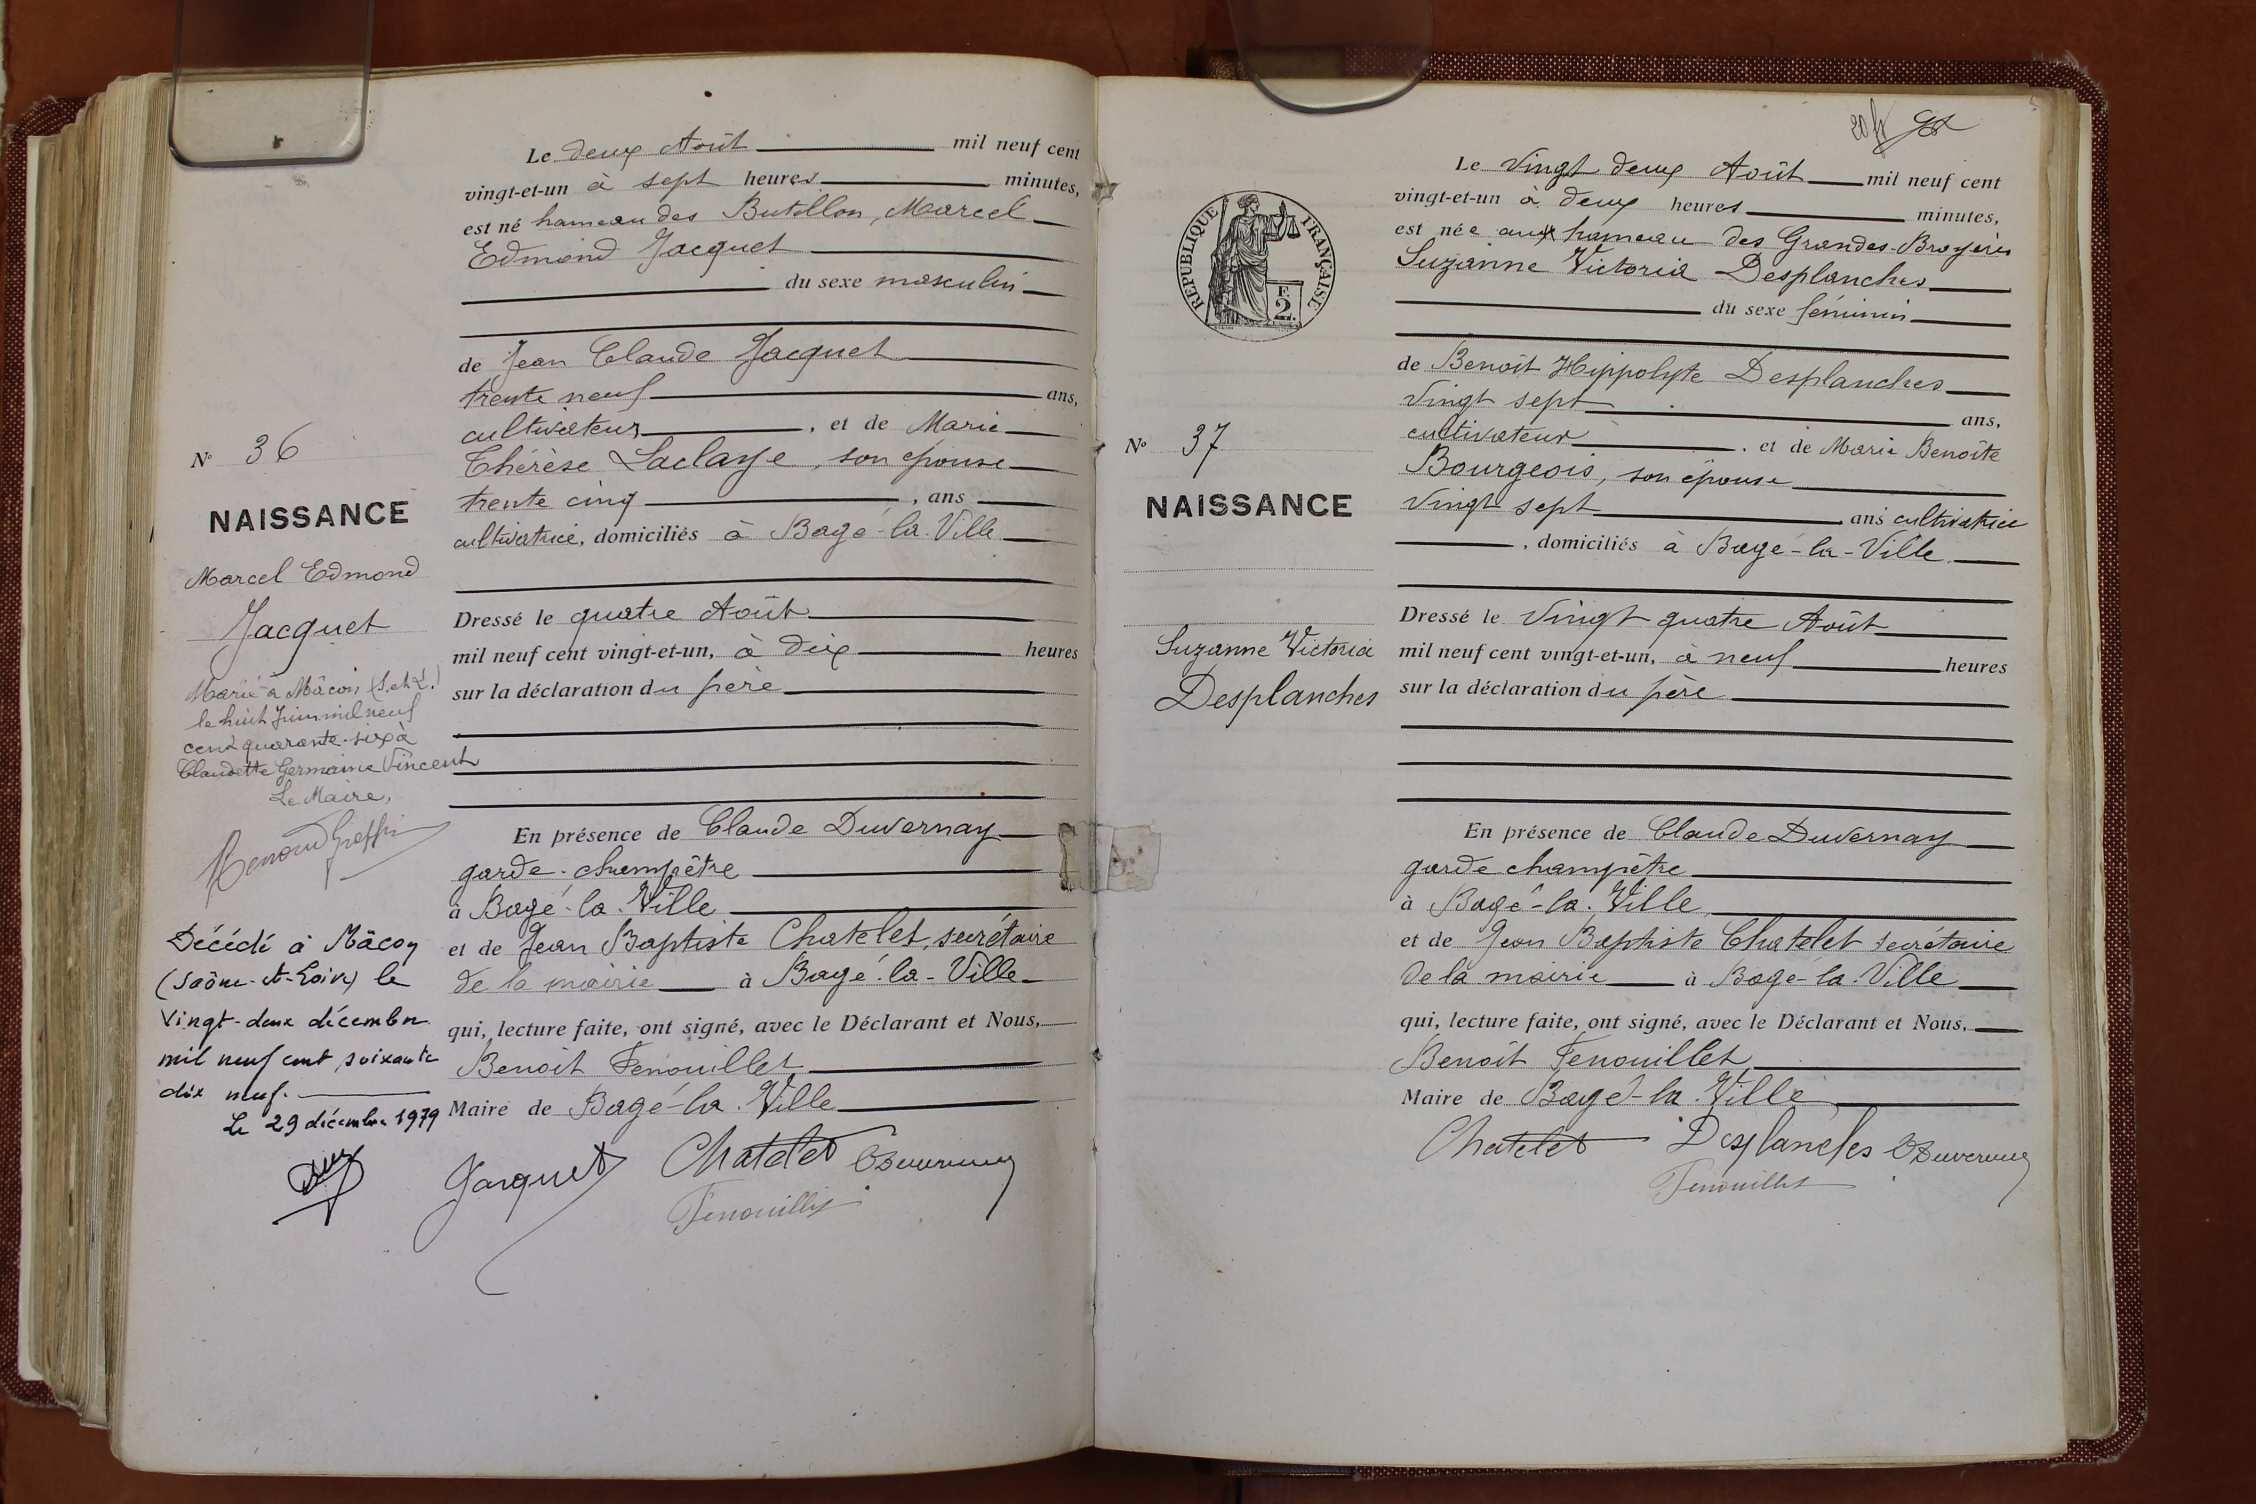 Le deux Août mil neuf cent
vingt-et-un à sept heures minutes,
est né hameau des Butillon, Marcel
Edmond Jacquet
du sexe masculin
de Jean Claude Jacquet
trente neuf ans,
cultivateur, et de Marie
Thérèse Laclaye, son épouse
trente cinq, ans
cultivatrice, domiciliés à Bagé-la-Ville
Dressé le quatre Août
mil neuf cent vingt-et-un, à dix heures
sur la déclaration du père
En présence de Claude Duvernay
garde-champêtre
à Bagé-la-Ville
et de Jean Baptiste Chatelet, secrétaire
de la mairie à Bagé-la-Ville
qui, lecture faite, ont signé, avec le Déclarant et Nous,
Benoit Fenouillet
Maire de Bagé-la-Ville
Jacquet Chatelet CDuvernay
Fenouillet
N° 36
NAISSANCE
Marcel Edmond
Jacquet
Marié à Mâcon (S. et L.)
le huit Juin mil neuf
cent quarante-six à
Claudette Germaine Vincent
Le Maire,
Décédé à Mâcon
(Saône-et-Loire) le
Vingt-deux décembre
mil neuf cent soixante
dix neuf.
Le 29 décembre 1979
20 fr
Le Vingt deux Août mil neuf cent
vingt-et-un à deux heures minutes,
est née aux hameau des Grandes-Bruyères
Suzanne Victoria Desplanches
du sexe féminin
de Benoit Hippolyte Desplanches
Vingt sept ans,
cultivateur, et de Marie Benoîte
Bourgeois, son épouse
Vingt sept ans cultivatrice
, domiciliés à Bagé-la-Ville
Dressé le Vingt quatre Août
mil neuf cent vingt-et-un, à neuf heures
sur la déclaration du père
En présence de Claude Duvernay
garde champêtre
à Bagé-la-Ville
et de Jean Baptiste Chatelet secrétaire
de la mairie à Bagé-la-Ville
qui, lecture faite, ont signé, avec le Déclarant et Nous,
Benoit Fenouillet
Maire de Bagé-la-Ville
Chatelet Desplanches CDuvernay
Fenouillet
REPUBLIQUE FRANÇAISE
F.
2.
N° 37
NAISSANCE
Suzanne Victoria
Desplanches